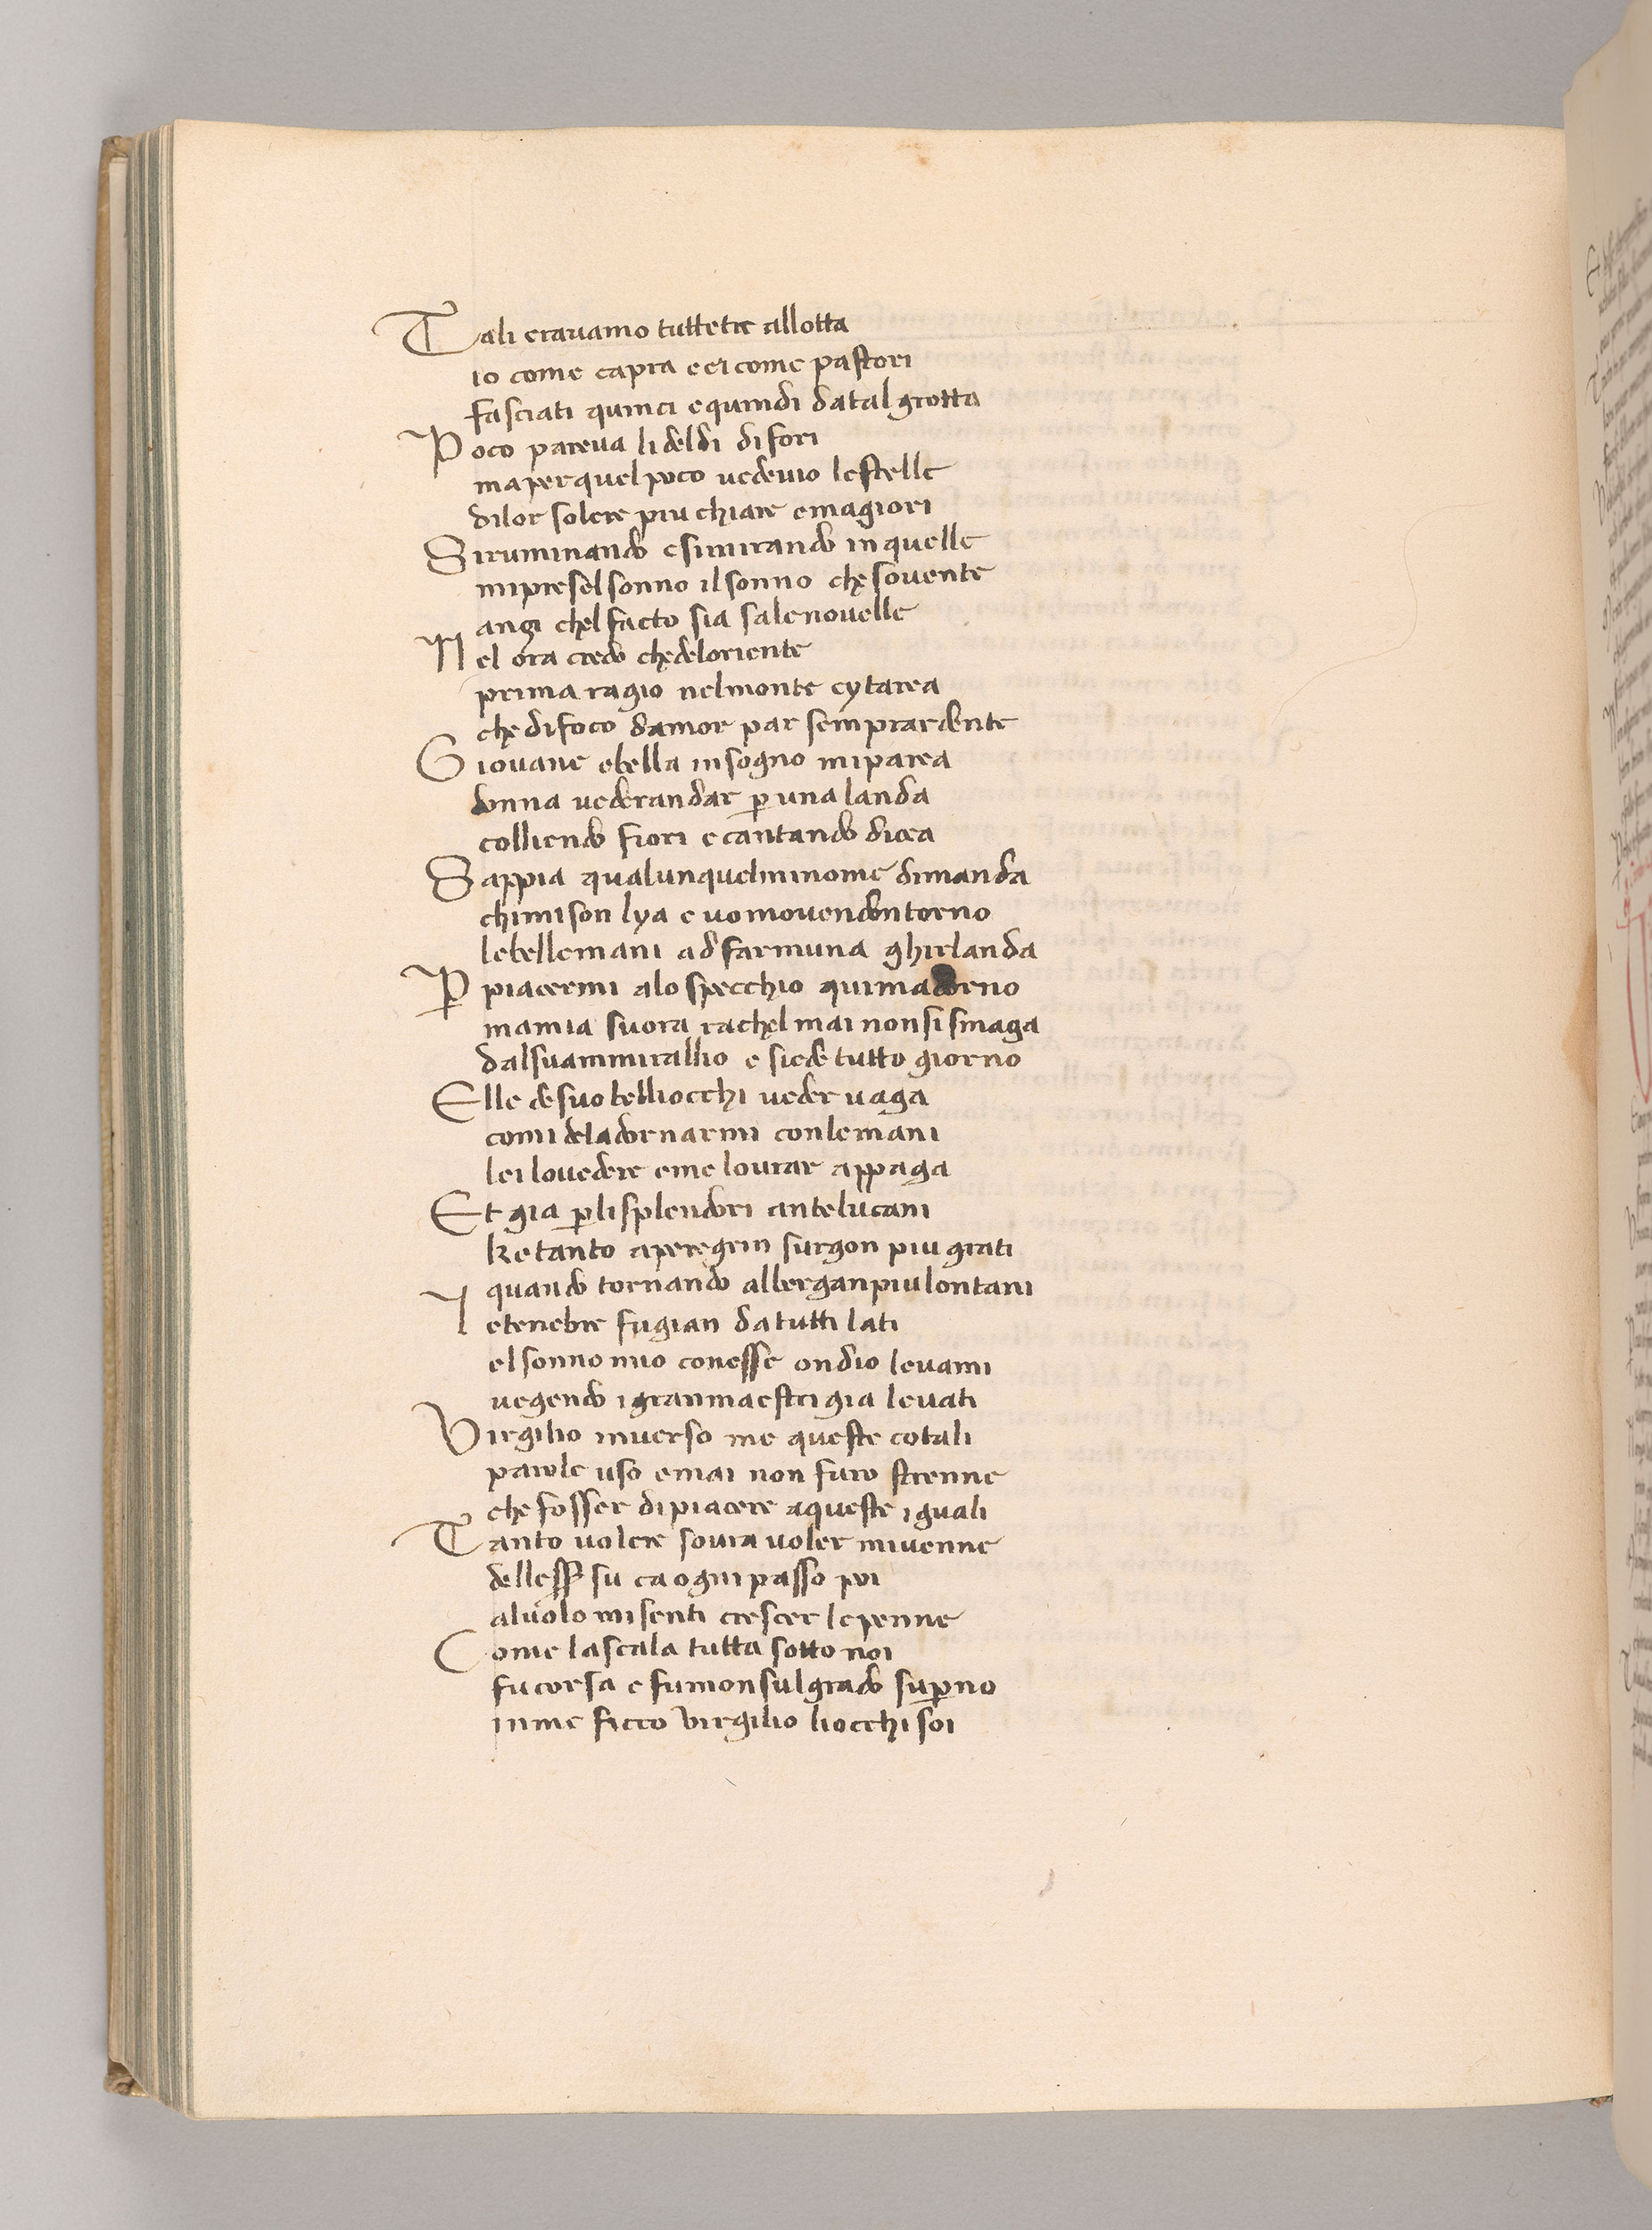 Tali eravamo tuttetre allotta
io come capra e ei come pastori
fasciati quinci equindi datal grotta
Poco pareva li deldi difori
ma perquel poco vedevio lestelle
dilor solere piu chiare emagiori
Siruminando esimirando inquelle
mipresel sonno ilsonno che sovente
anzi chel facto sia salenovelle
Nel ora credo chedeloriente
prima ragio nelmonte cytarea
che difoco damor par semprardente
Giovane ebella insogno miparea
donna vederandar p una landa
colliendo fiori ecantando dicea
Sappia qualunquelminome dimanda
chimison lya e vomovendontorno
lebellemani ad farmuna ghirlanda
P piacermi alo specchio quimadorno
mamia suora rachel mai nonsi smaga
dalsuammirallio e siede tutto giorno
Elle desuo belliocchi veder vaga
comi deladornarmi conlemani
lei lovedere eme lovrar appaga
Et gia plisplendori antelucani
ke tanto aperegrin surgon piu grati
quando tornando allbergan piulontani
Letenebre fugian datutti lati
elsonno mio conesse ondio levami
vegendo i granmaestri gia levati
Virgilio inverso me queste cotali
parole uso emai non furo strenne
che fosser dipiacere aqueste iguali
Tanto volere sovra voler mivenne
dellesser su ca ogni passo poi
alvolo misenti crescer lepenne
Come lascala tutta sotto noi
fu corsa e fumonsulgrado supno
inme ficco virgilio liocchi soi